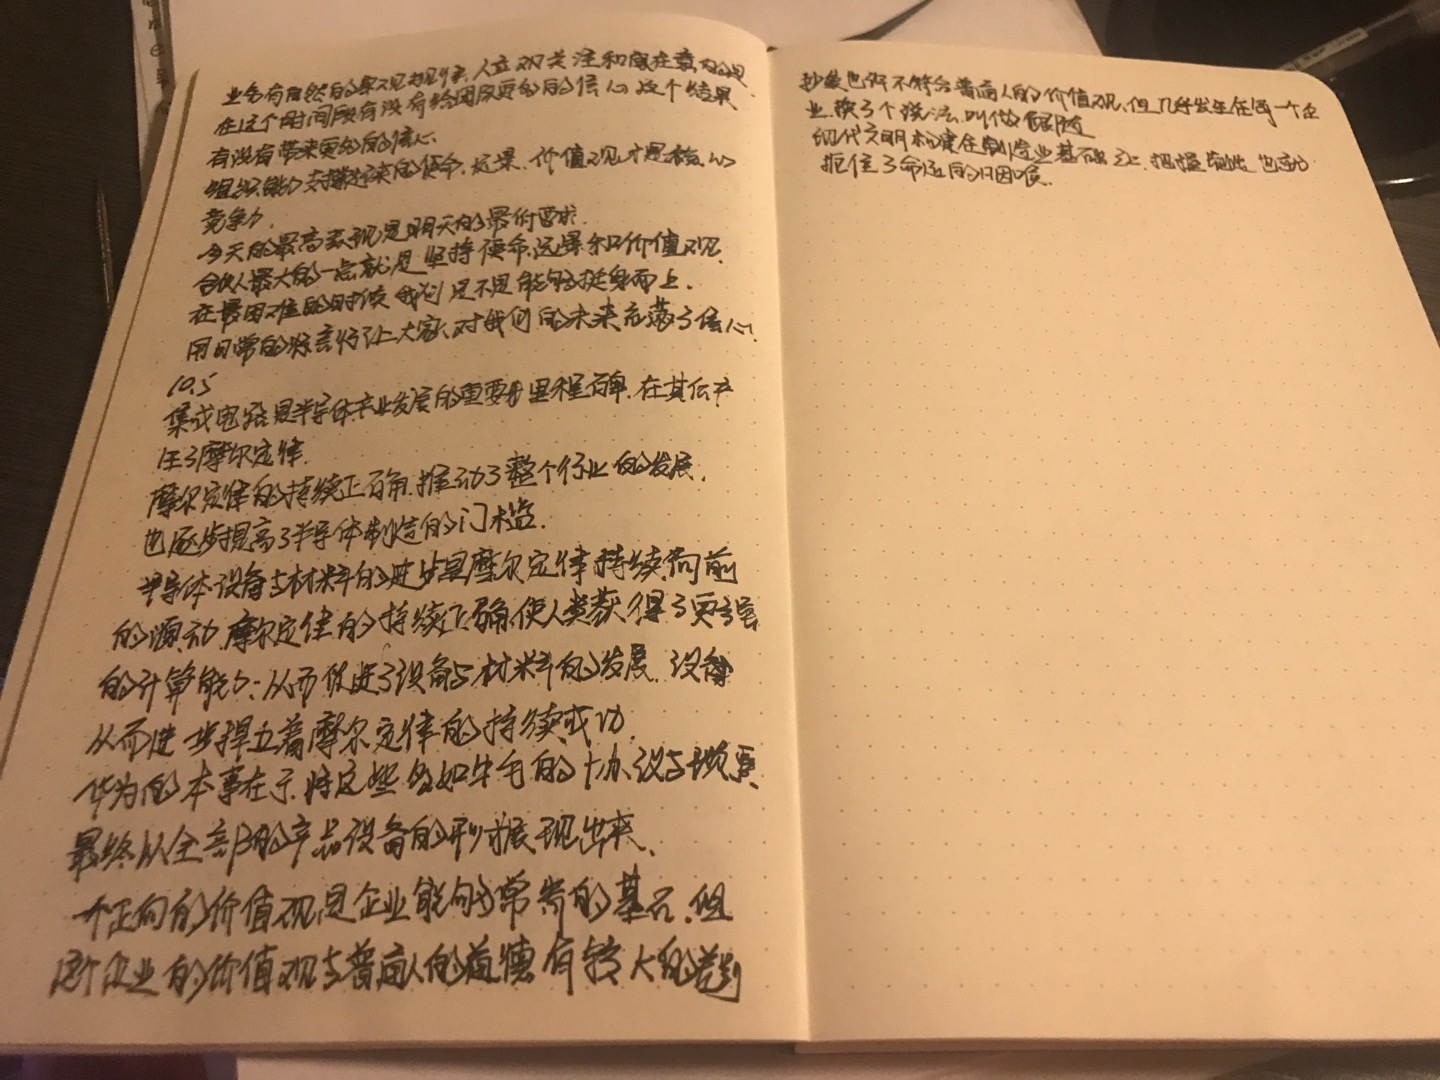 业务有自然的客观规律,人应该关注和存在意的是
在这个时间段有没有给团队更多的信心 这个结果
有没有带来更多的信心.
组织能力支撑起来的使命.远景.价值观才是核心
竞争力.
今天的最高表现是明天的最低要求.
合伙人最大的一点就是坚持使命,远景和价值观
在最困难的时候 我们是不是能够挺身而上.
用日常的言行让大家对我们的未来充满了信心.
10.5
集成电路是半导体产业发展的重要里程碑.在其后产
生了摩尔定律.
摩尔定律的持续正确.推动了整个行业的发展.
也逐步提高了半导体制造的门槛.
半导体设备与材料的进步是摩尔定律持续向前
的源动.摩尔定律的持续正确使人类获得了更
的计算能力.从而促进了设备与材料的发展.设备
从而进步 着摩尔定律的持续成功.
华为的本事在于.将这些多如牛毛的协议与
最终从全部的产品设备的形 展现出来.
一个正向的价值观是企业能够常青的基石.但
这个企业的价值观与普商人的道德有较大的差别
抄袭也许不符合普商人的价值观,但几乎发生在每一个企
业.换了个说法.叫做跟随
现代文明构建在制造业基础之上.把握制造也就
扼住了命运的咽喉.